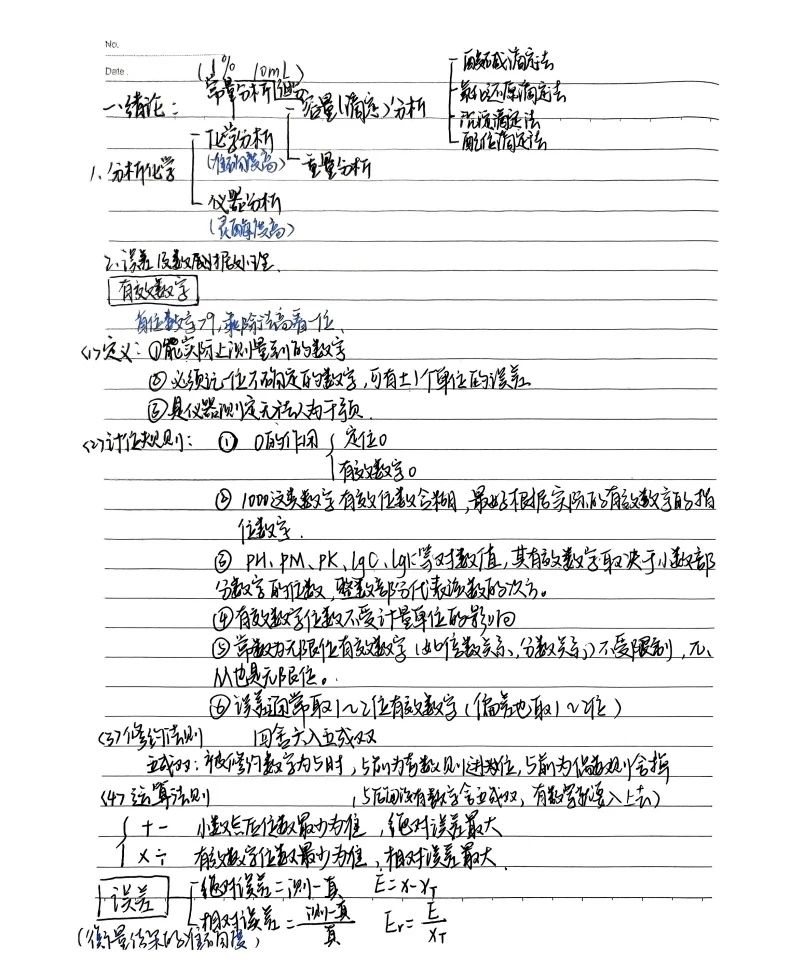 No.
Date.
(1% 10mL)
常量分析
酸碱滴定法
氧化还原滴定法
沉淀滴定法
配位滴定法
一、绪论:
容量(滴定)分析
重量分析
化学分析
(准确度高)
1、分析化学
仪器分析
(灵敏度高)
2、误差及数据处理
有效数字
首位数字>9,乘除法高看一位、
<1>定义:①能实际上测量到的数字
②必须记一位不确定的数字,可有±1个单位的误差
③是仪器测定无法人为干预
<2>计位规则: ① 0的作用 定位0
有效数字0
② 1000这类数字有效位数含糊,最好根据实际的有效数字的指
位数字.
③ PH、PM、PK、lgC、lgk等对数值,其有效数字取决于小数部
分数字的位数,整数部分代表该数的次方。
④有效数字位数不受计量单位的影响
⑤常数为无限位有效数字(如倍数关系、分数关系)不受限制,π、
M也是无限位。
⑥误差通常取1~2位有效数字(偏差也取1~2位)
<3>修约法则 四舍六入五成双
五成双:被修约数字为5时,5前为奇数则进位,5前为偶数则舍掉
<4>运算法则 (5后面没有数字舍五成双,有数字就要入上去)
+ - 小数点后位数最少为准,绝对误差最大
× ÷ 有效数字位数最少为准,相对误差最大
误差
绝对误差=测-真 E=x-x_T
相对误差=测-真/真 Er=E/x_T
(衡量结果的准确度)